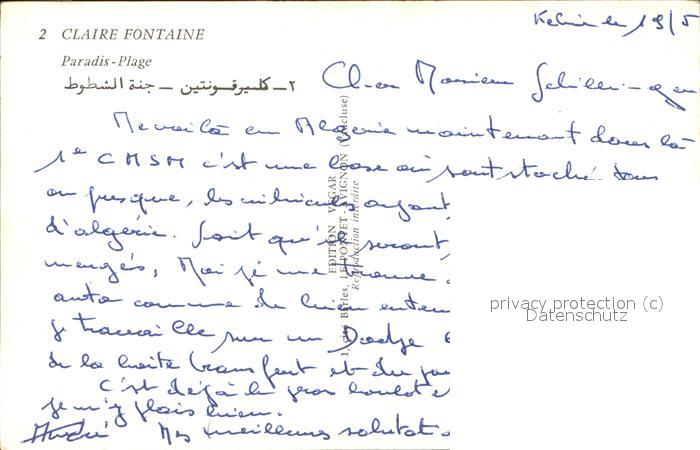 2 CLAIRE FONTAINE
Paradis-Plage
٢ـ كليرفونتين ـ جنة الشطوط
le 19/5
Cher Monsieur
Me voilà en Algérie maintenant dans la
1e CMSM c'est une base où sont stocké tous
ou presque, les véhicules ayant
d'algérie. Soit qu'ils seront
Moi je me trouve
auto comme de bien enten
je travaille sur un Dodge 6
de la boite transfert et du
C'est déjà le gros boulot e
je m'y plais bien.
André Mes meilleures salutat
EDITION VÉGAR
1, rue Barles, LE PONTET-AVIGNON (Vaucluse)
Reproduction interdite
privacy protection (c)
Datenschutz